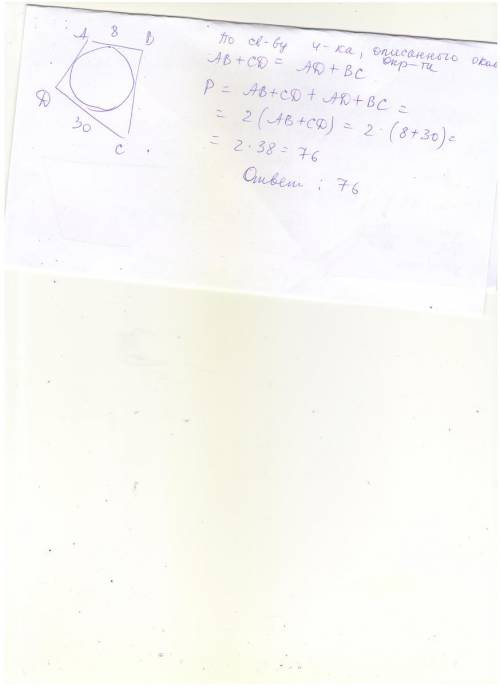 A 8 B
D
30
C
По св-ву ч-ка, описанного окол
окр-ти
AB + CD = AD + BC
P = AB + CD + AD + BC =
= 2 (AB + CD) = 2 · (8 + 30) =
= 2 · 38 = 76
Ответ : 76